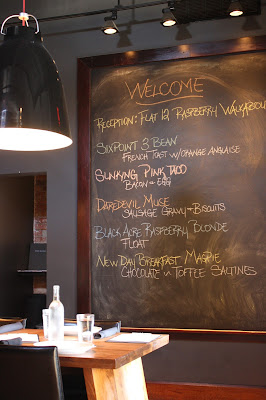 WELCOME
RECEPTION: FLAT 12 RASPBERRY WALKABOUT
SIXPOINT 3 BEAN
FRENCH TOAST W/ORANGE ANGLAISE
SUNKING PINK TACO
BACON & EGG
DAREDEVIL MUSE
SAUSAGE GRAVY & BISCUITS
BLACK ACRE RASPBERRY BLONDE
FLOAT
NEW DAY BREAKFAST MAGPIE
CHOCOLATE TOFFEE SALTINES